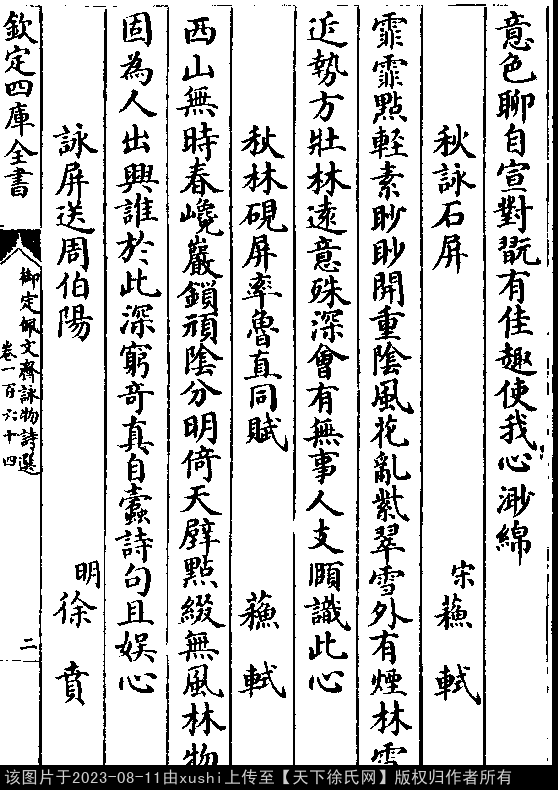 意色聊自宣對翫有佳趣使我心渺綿
秋詠石屏
宋蘇軾
霏霏點輕素眇眇開重陰風花亂紫翠雪外有煙林雪
近勢方壯林遠意殊深會有無事人支頤識此心
秋林硯屏率魯直同賦
蘇軾
西山無時春巉巖鎖頑陰分明倚天壁點綴無風林物
固為人出興誰於此深窮奇真自蠹詩句且娛心
詠屏送周伯陽
明徐賁
欽定四庫全書
御定佩文齋詠物詩選
卷一百六十四
二
该图片于2023-08-11由xushi上传至【天下徐氏网】版权归作者所有